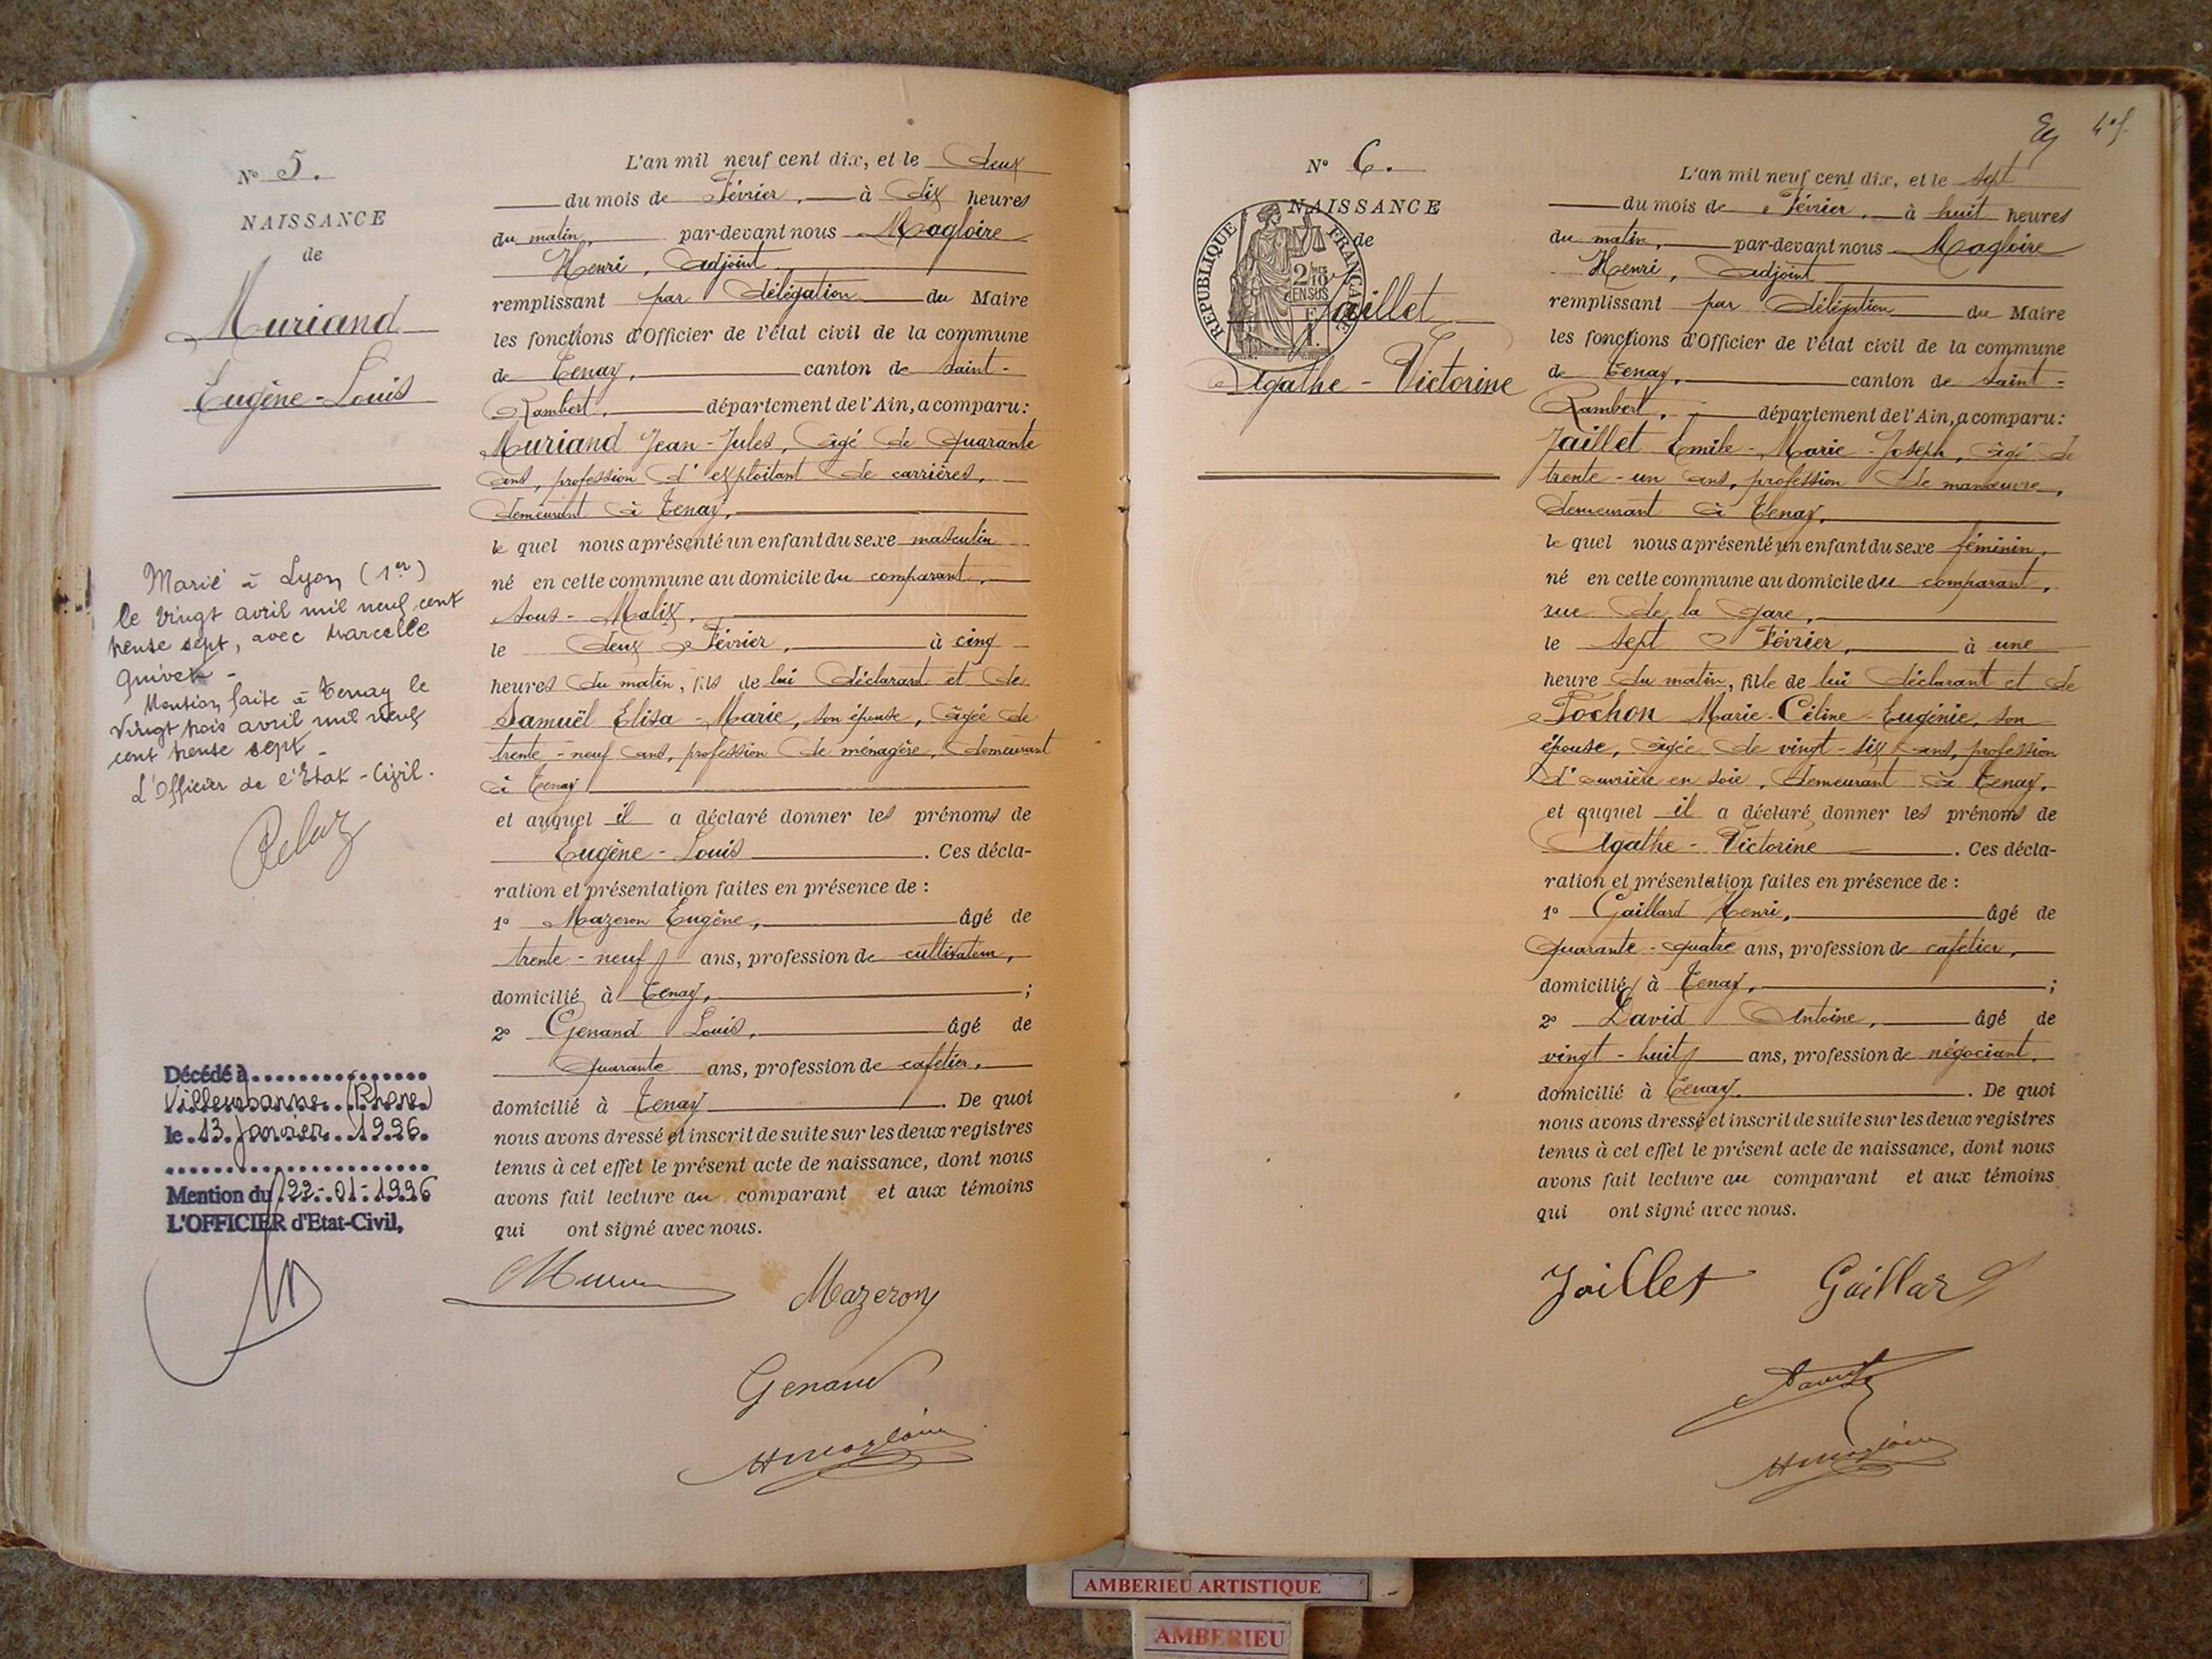 N° 5.
NAISSANCE
de
Muriand
Eugène-Louis
Marié à Lyon (1er)
le vingt avril mil neuf cent
trente sept, avec Marcelle
Mention faite à Tenay le
vingt trois avril mil neuf
cent trente sept -
L'Officier de l'Etat-Civil.
Décédé à
Villeurbanne (Rhône)
le 13 Janvier 1996.
Mention du 22-01-1996
L'OFFICIER d'Etat-Civil,
L'an mil neuf cent dix, et le deux
du mois de Février, à dix heures
du matin, par-devant nous Magloire
Henri, adjoint
remplissant par délégation du Maire
les fonctions d'Officier de l'état civil de la commune
de Tenay, canton de Saint-
Rambert, département de l'Ain, a comparu:
Muriand Jean-Jules, âgé de quarante
ans, profession d'exploitant de carrières,
demeurant à Tenay,
le quel nous a présenté un enfant du sexe masculin
né en cette commune au domicile du comparant,
sous-Malix,
le deux Février, à cinq
heures du matin, fils de lui déclarant et de
Samuël Elisa-Marie, son épouse, âgée de
trente-neuf ans, profession de ménagère, demeurant
à Tenay
et auquel il a déclaré donner les prénoms de
Eugène-Louis. Ces décla-
ration et présentation faites en présence de :
1° Mazeron Eugène, âgé de
trente-neuf ans, profession de cultivateur,
domicilié à Tenay, ;
2° Genand Louis, âgé de
quarante ans, profession de cafetier,
domicilié à Tenay. De quoi
nous avons dressé et inscrit de suite sur les deux registres
tenus à cet effet le présent acte de naissance, dont nous
avons fait lecture au comparant et aux témoins
qui ont signé avec nous.
Mazeron
Genand
HMagloire
N° 6.
NAISSANCE
de
REPUBLIQUE FRANÇAISE
Jaillet
Agathe-Victorine
L'an mil neuf cent dix, et le sept
du mois de Février, à huit heures
du matin, par-devant nous Magloire
Henri, adjoint
remplissant par délégation du Maire
les fonctions d'Officier de l'état civil de la commune
de Tenay, canton de Saint-
Rambert, département de l'Ain, a comparu:
Jaillet Emile-Marie-Joseph, âgé de
trente-un ans, profession de manœuvre,
demeurant à Tenay,
le quel nous a présenté un enfant du sexe féminin,
né en cette commune au domicile du comparant,
rue de la gare,
le sept Février, à une
heure du matin, fille de lui déclarant et de
Pochon Marie-Céline-Eugénie, son
épouse, âgée de vingt-six ans, profession
d'ouvrière en soie, demeurant à Tenay,
et auquel il a déclaré donner les prénoms de
Agathe-Victorine. Ces décla-
ration et présentation faites en présence de :
1° Gaillard Henri, âgé de
quarante-quatre ans, profession de cafetier,
domicilié à Tenay, ;
2° David Antoine, âgé de
vingt-huit ans, profession de négociant,
domicilié à Tenay. De quoi
nous avons dressé et inscrit de suite sur les deux registres
tenus à cet effet le présent acte de naissance, dont nous
avons fait lecture au comparant et aux témoins
qui ont signé avec nous.
Jaillet Gaillard
David
HMagloire
AMBERIEU ARTISTIQUE
AMBERIEU